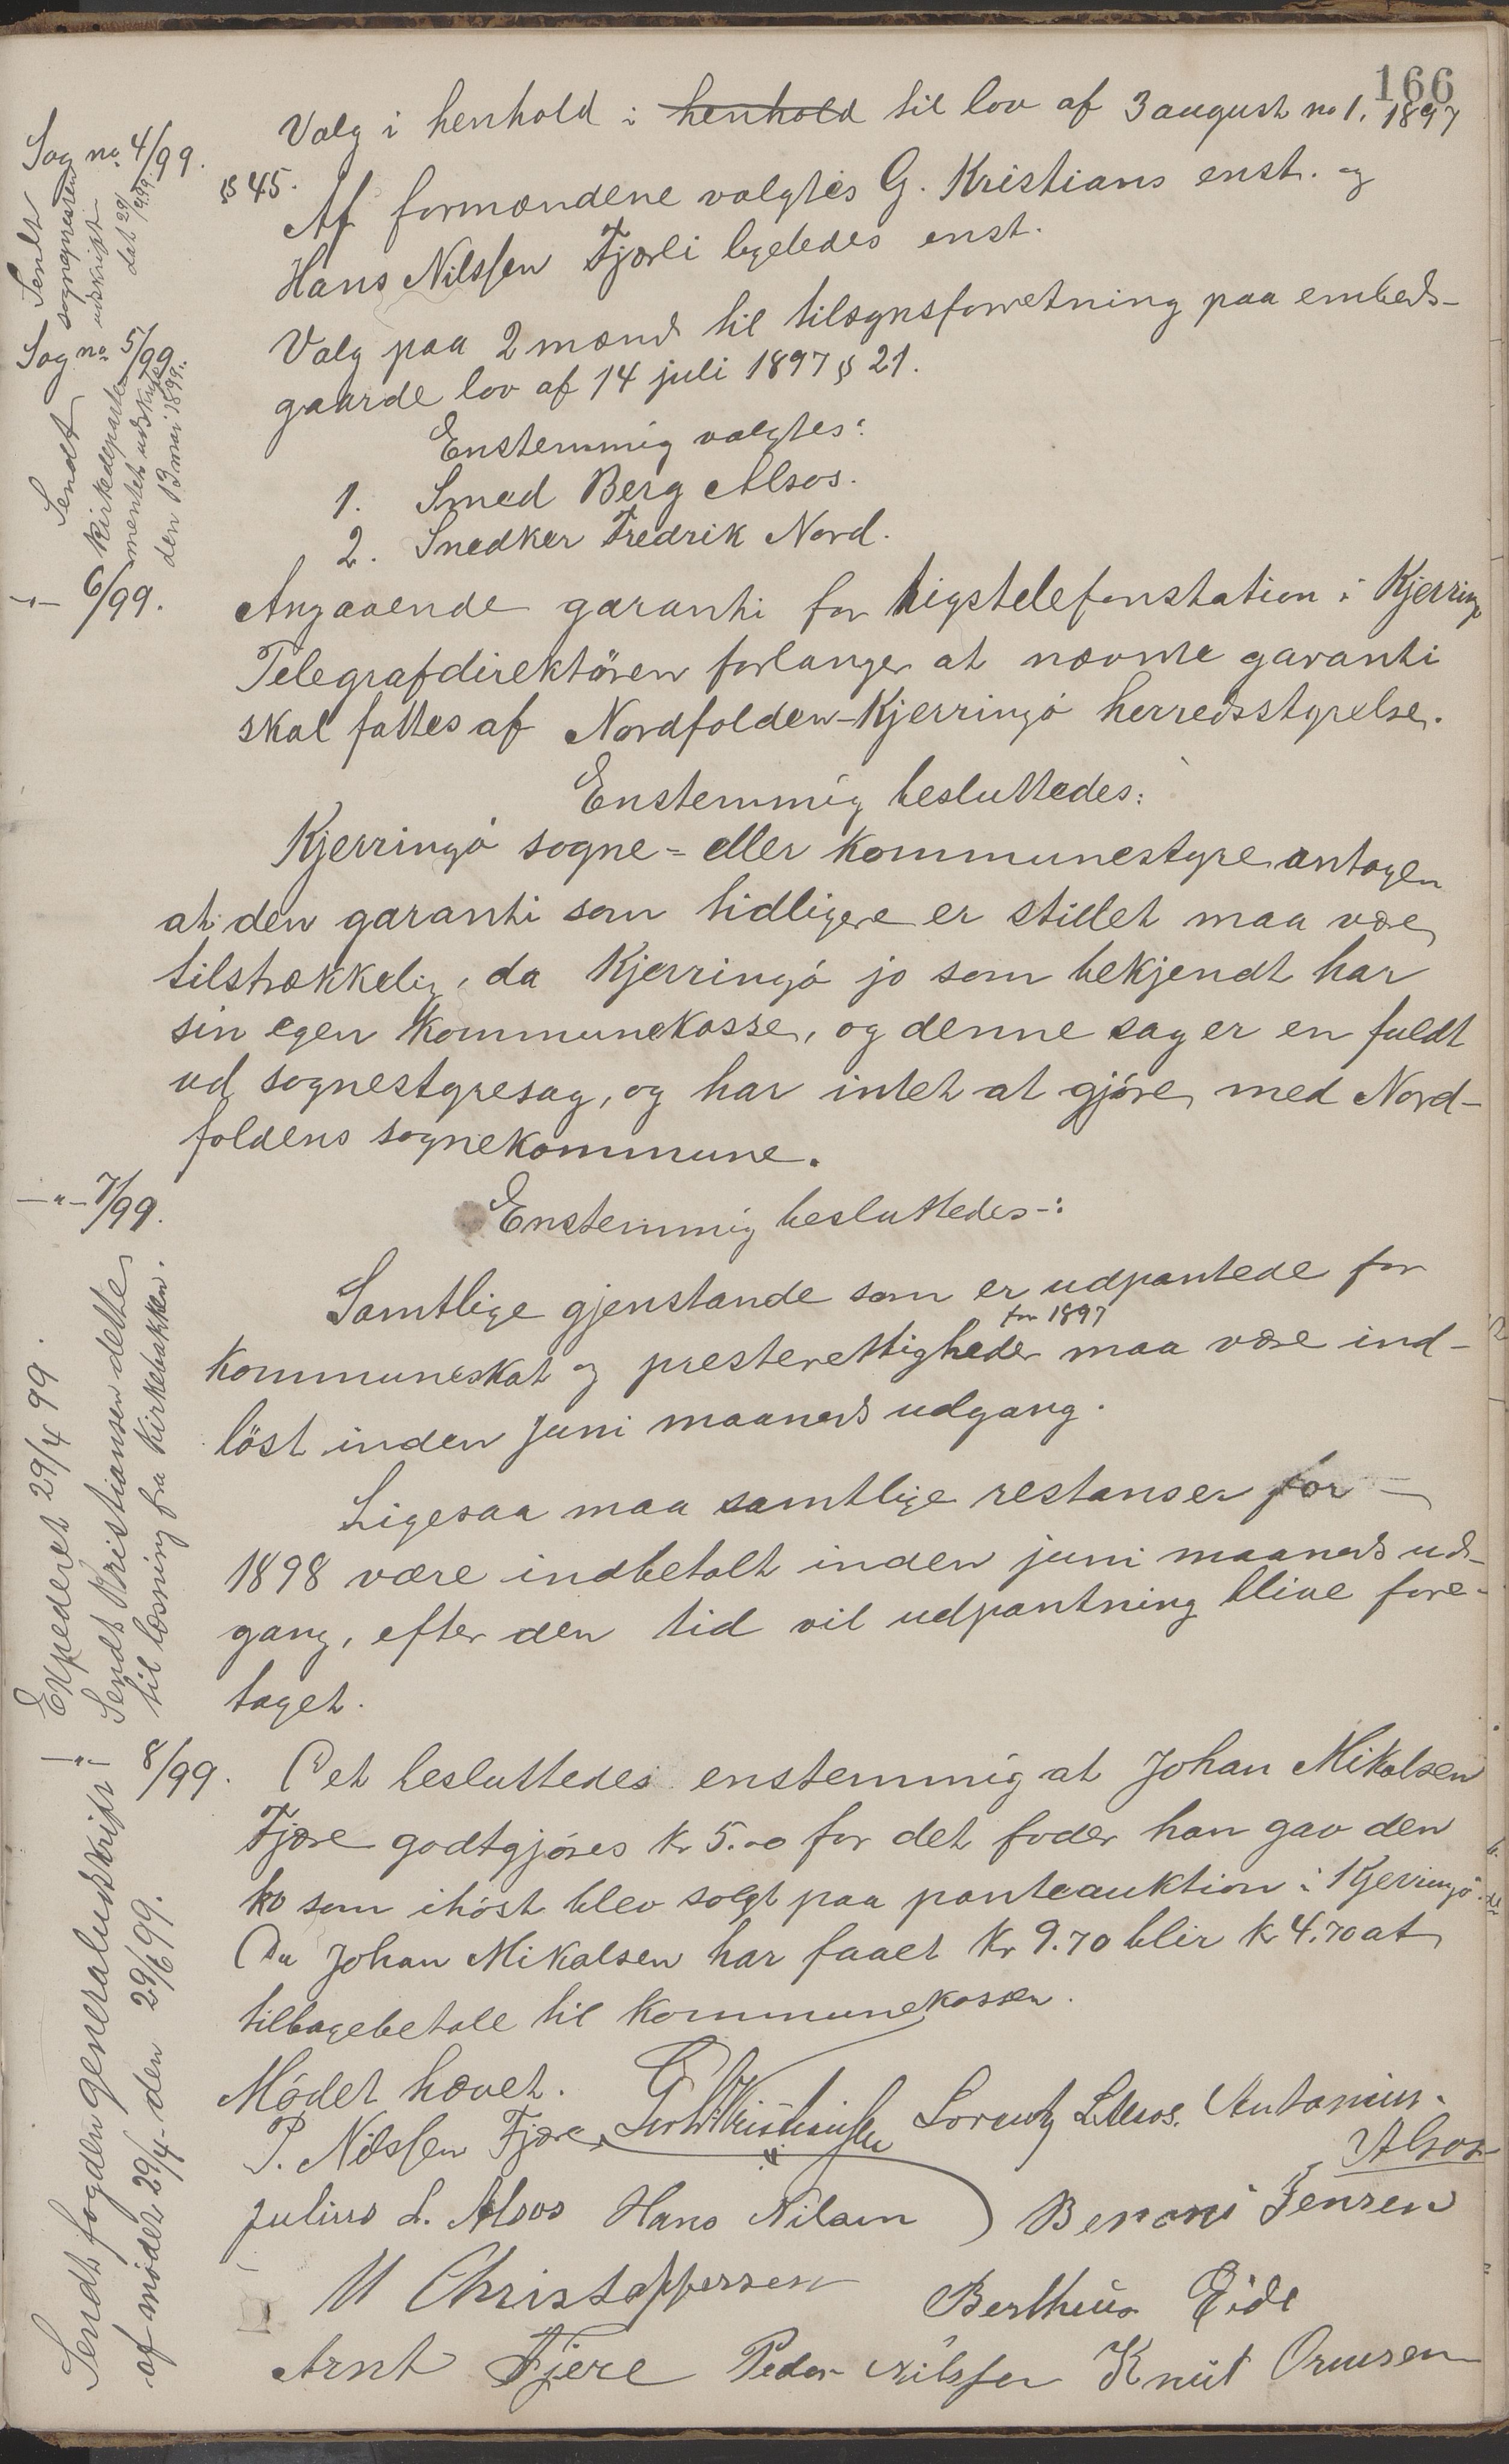 166
Sag no 4/99.
Valg i henhold i henhold til lov af 3 august no 1. 1897
§ 45.
Af formændene valgtes G. Kristians enst. og
Hans Nilssen Fjærli ligeledes enst.
Sendt
sognepresten
udskrift
dat 29/4 1899.
Sag no 5/99.
Valg paa 2 mænd til tilsynsforretning paa embeds-
gaarde lov af 14 juli 1897 § 21.
Enstemmig valgtes:
1. Smed Berg Alsos.
2. Snedker Fredrik Nord.
Sendt
kirkedeparte-
mentet udskrift
den 13 mai 1899.
-"- 6/99.
Angaaende garanti for rigstelefonstation i Kjerringö
Telegrafdirektören forlanger at nævnte garanti
skal fattes af Nordfolden-Kjerringö herredsstyrelse.
Enstemmig besluttedes:
Kjerringö sogne- eller kommunestyre antagen
at den garanti som tidligere er stillet maa være
tilstrækkelig, da Kjerringö jo som bekjendt har
sin egen kommunekasse, og denne sag er en fuldt
ud sognestyresag, og har intet at gjöre med Nord-
foldens sognekommune.
-"- 7/99.
Enstemmig besluttedes:
Samtlige gjenstande som er udpantede for
kommuneskat og presterettigheder for 1897 maa være ind-
löst inden juni maaneds udgang.
Ligesaa maa samtlige restanser for
1898 være indbetalt inden juni maaneds ud-
gang, efter den tid vil udpantning blive fore-
taget.
Expederet 29/4 99.
Sendt Kristiansen dette
til læsning fra kirkebakken.
-"- 8/99.
Det besluttedes enstemmig at Johan Mikalsen
Fjære godtgjöres kr 5.00 for det foder han gav den
ko som ihöst blev solgt paa panteauktion i Kjerringö.
Da Johan Mikalsen har faaet kr 9.70 blir kr 4.70 at
tilbagebetale til kommunekassen.
Mödet hævet.
Sendt fogden generaludskrift
af mödet 29/4 den 29/6 99.
P. Nilssen Fjære Kristiansen Lorentz Alsos. Antonius
Alsos
Julius L. Alsos Hans Nilsen Benoni Jensen
M Christoffersen Bertheus Eide
Arnt Fjere Peder Nilssen Knut Ormsen